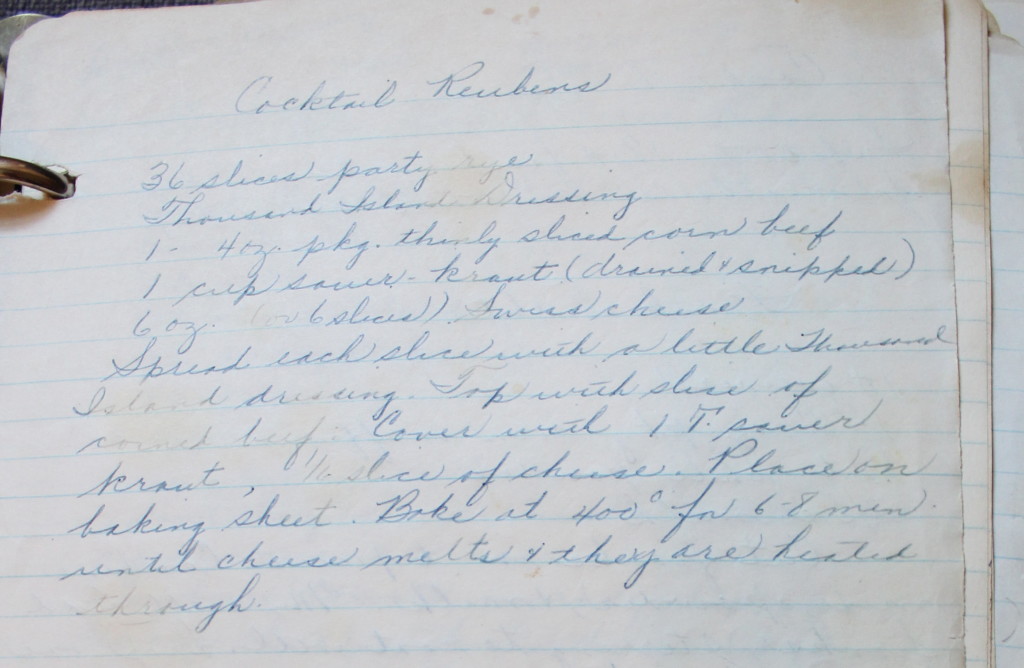 Cocktail Reubens
36 slices party rye
Thousand Island Dressing
1 - 4 oz. pkg. thinly sliced corn beef
1 cup sauer-kraut (drained & snipped)
6 oz. (or 6 slices) Swiss cheese
Spread each slice with a little Thousand
Island dressing. Top with slice of
corned beef. Cover with 1 T. sauer
kraut, slice of cheese. Place on
baking sheet. Bake at 400° for 6-8 min.
until cheese melts & they are heated
through.